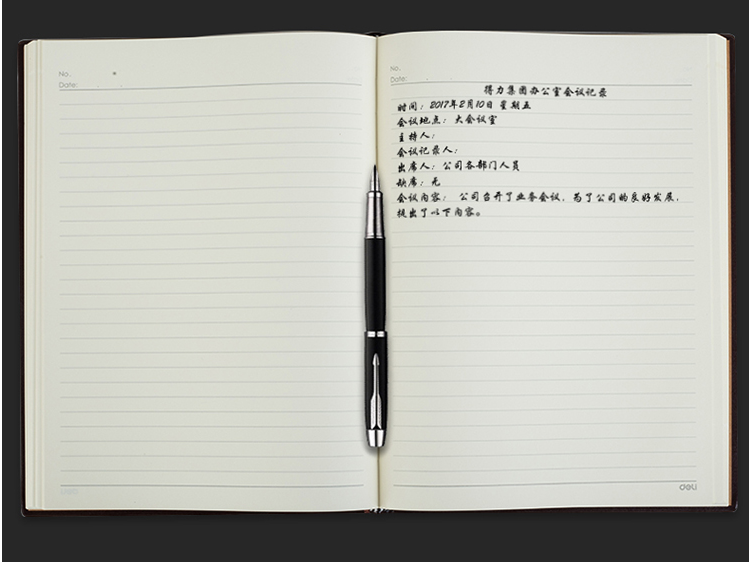 No.
Date:
No.
Date:
得力集团办公室会议记录
时间：2017年2月10日 星期五
会议地点：大会议室
主持人：
会议记录人：
出席人：公司各部门人员
缺席：无
会议内容： 公司召开了业务会议，为了公司的良好发展，
提出了以下内容。
deli